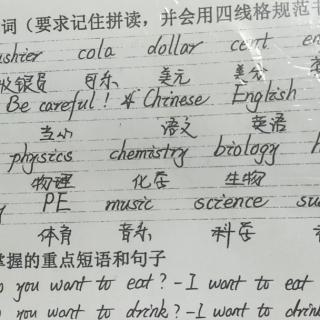 词（要求记住拼读，并会用四线格规范书
cola dollar cent
收银员 可乐 美元 美分
Be careful ! * Chinese English
当心 语文 英语
physics chemistry biology
物理 化学 生物
PE music science
体育 音乐 科学
掌握的重点短语和句子
you want to eat? - I want to eat
you want to drink? - I want to drink